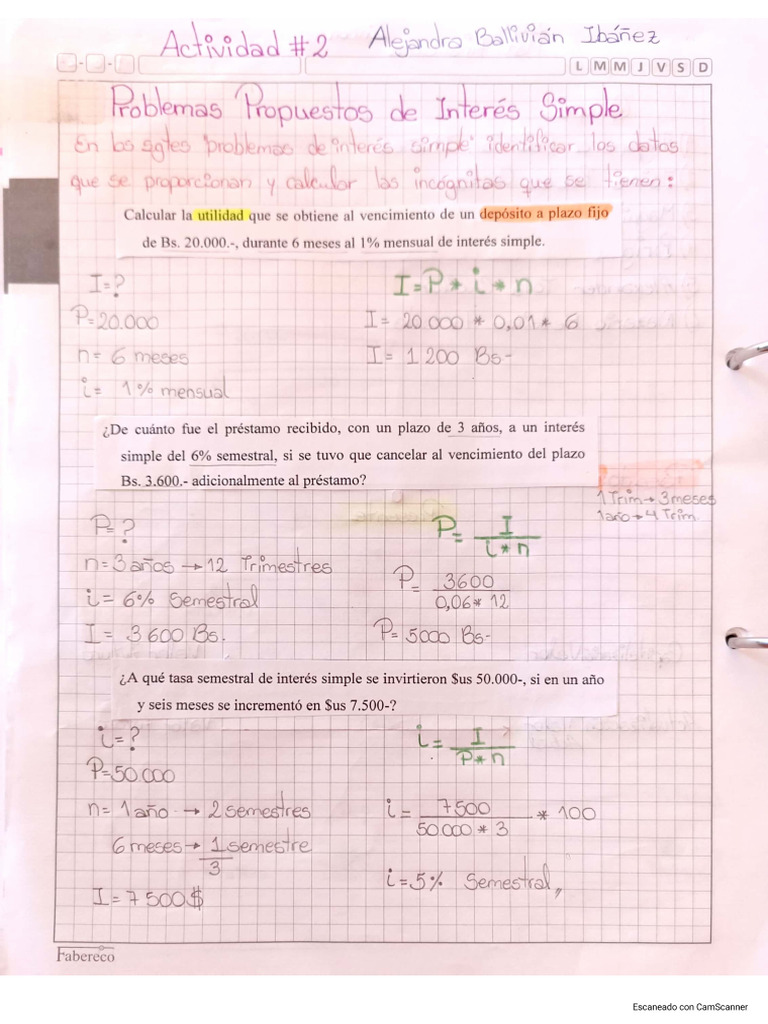 Actividad #2 Alejandra Ballivián Ibáñez
L M M J V S D
Problemas Propuestos de Interés Simple
En los sgtes problemas de interés simple identificar los datos
que se proporcionan y calcular las incógnitas que se tienen:
Calcular la utilidad que se obtiene al vencimiento de un depósito a plazo fijo
de Bs. 20.000.-, durante 6 meses al 1% mensual de interés simple.
I=? I=P*i*n
P=20.000 I= 20.000 * 0,01 * 6
n= 6 meses I= 1200 Bs-
i= 1% mensual
¿De cuánto fue el préstamo recibido, con un plazo de 3 años, a un interés
simple del 6% semestral, si se tuvo que cancelar al vencimiento del plazo
Bs. 3.600.- adicionalmente al préstamo?
1 Trim→3meses
1año→4 Trim.
P=? P= I / i*n
n=3 años → 12 Trimestres
i= 6% Semestral P= 3600 / 0,06* 12
I= 3600 Bs. P= 5000 Bs-
¿A qué tasa semestral de interés simple se invirtieron $us 50.000-, si en un año
y seis meses se incrementó en $us 7.500-?
i=? i= I / P*n
P=50.000
n= 1 año → 2 semestres i= 7500 / 50000 * 3 * 100
6 meses→ 1 semestre
3
i=5% Semestral,
I= 7500$
Fabereco
Escaneado con CamScanner